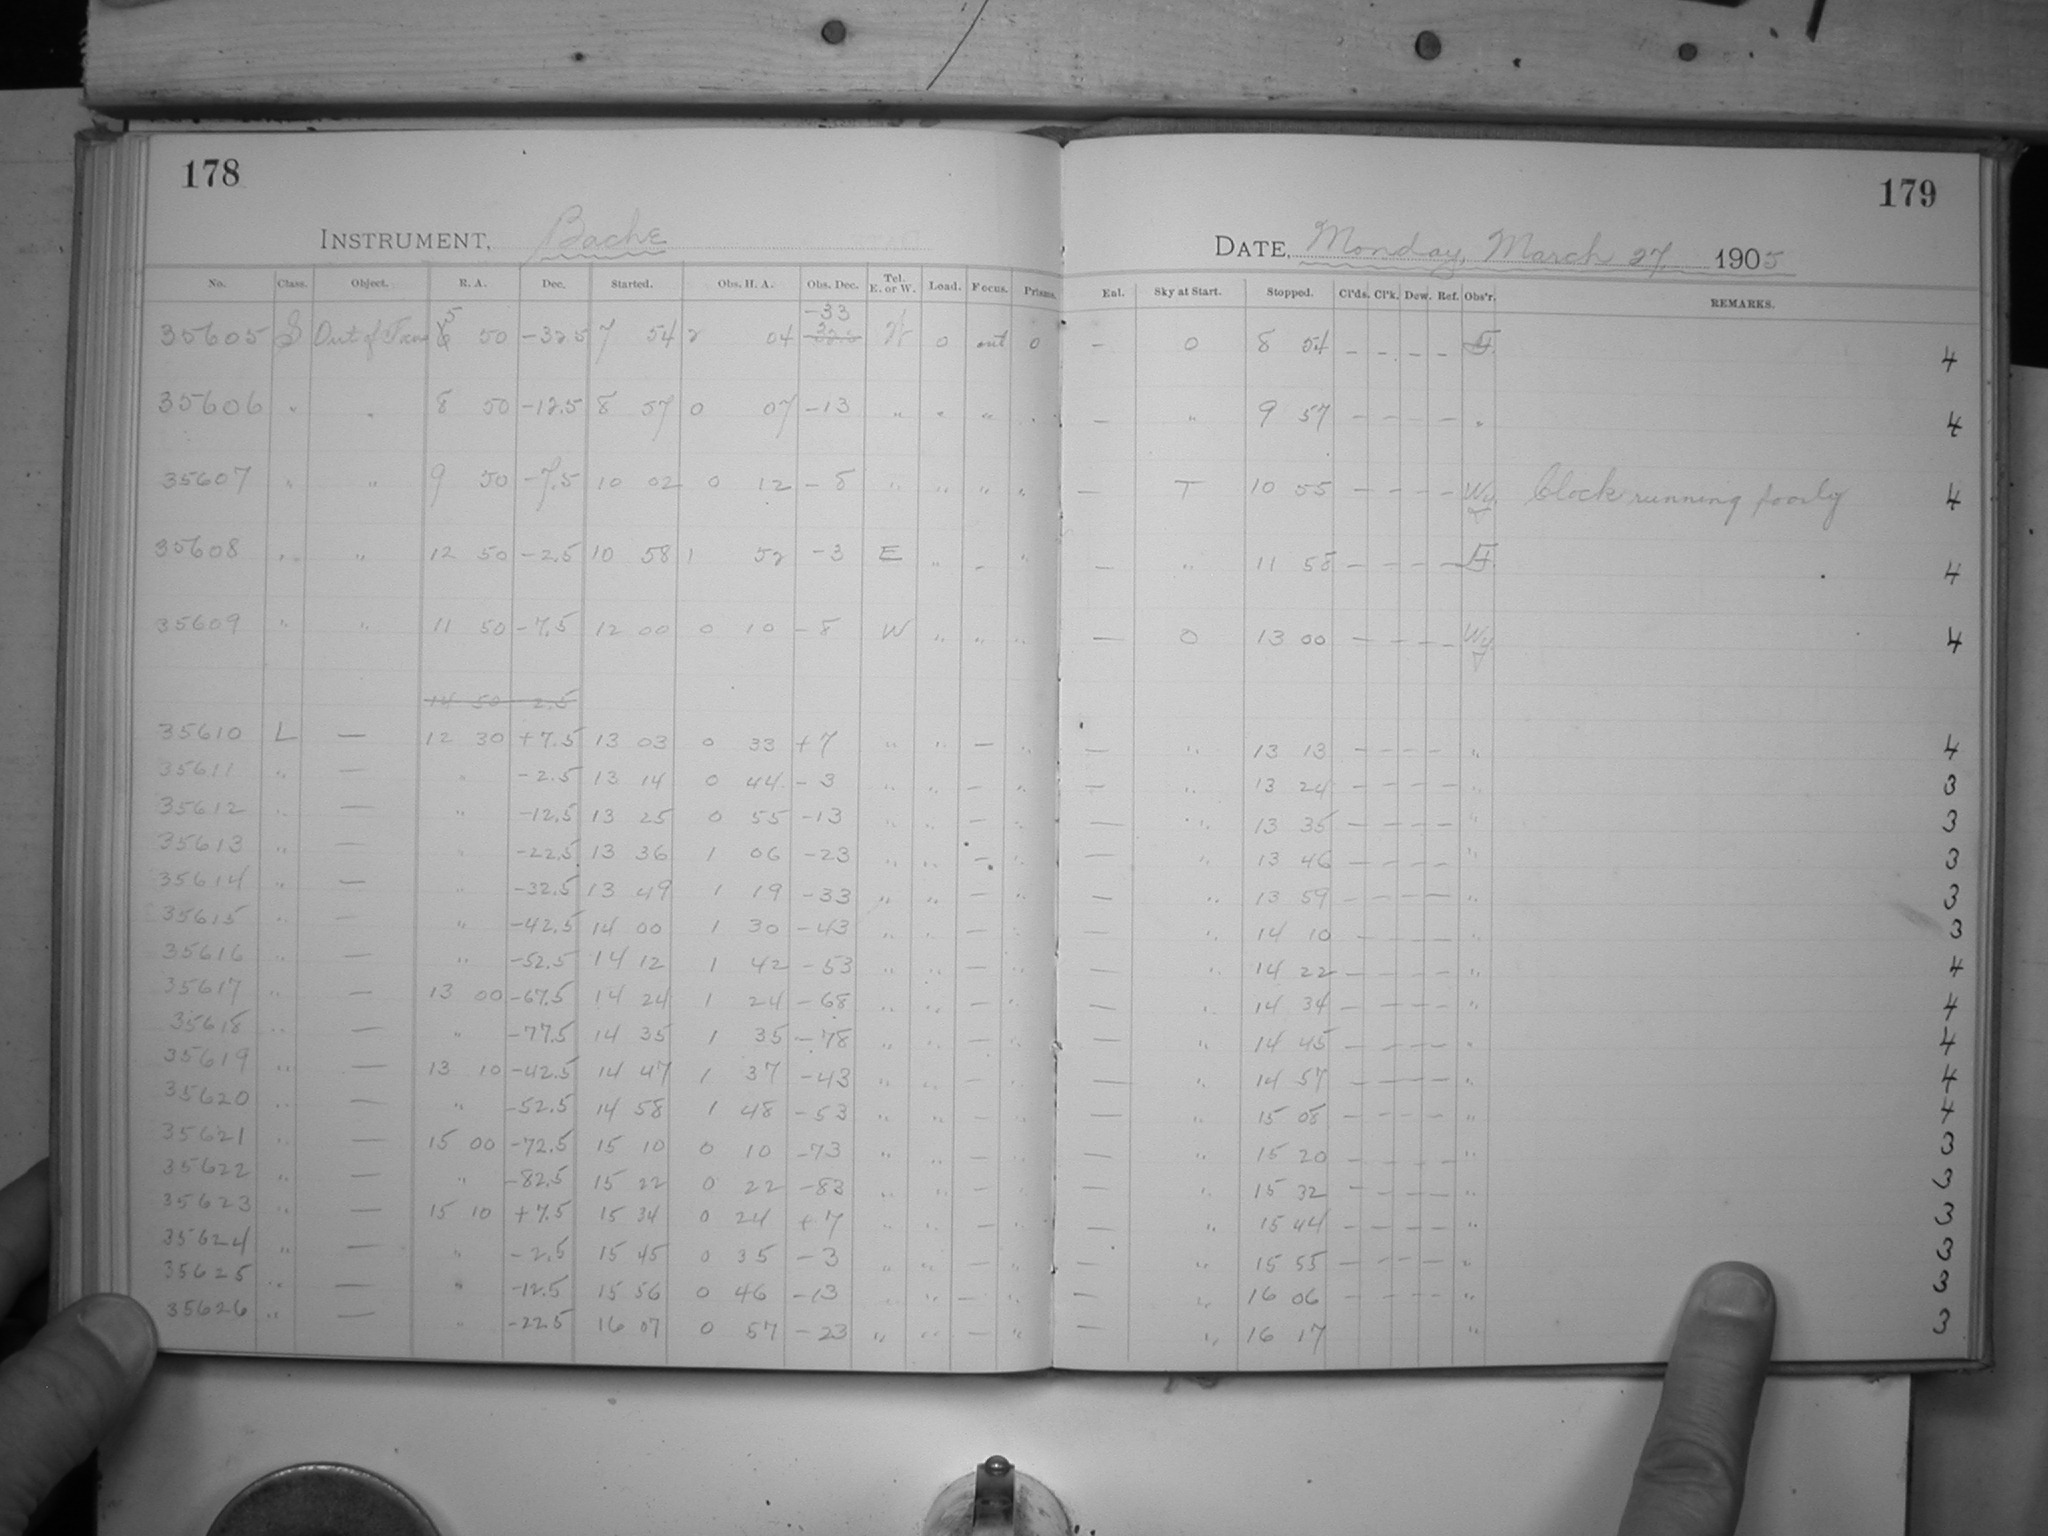 178
INSTRUMENT, Bache
No. Class. Object. R. A. Dec. Started. Obs. H. A. Obs. Dec. Tel. E. or W. Load. Focus. Prisms.
179
DATE, Monday, March 27, 1905
Eal. Sky at Start. Stopped. Cl'ds. Cl'k. Dew. Ref. Obs'r. REMARKS.
35605 S Out of Focus 5 50 -32.5 7 54 2 04 -33 W 0 out 0 — 0 8 54 — — — — 4
35606 " " 8 50 -12.5 8 57 0 07 -13 " " " " — " 9 57 — — — — " 4
35607 " " 9 50 -7.5 10 02 0 12 -8 " " " " — T 10 55 — — — — Wy. Clock running poorly 4
35608 " " 12 50 -2.5 10 58 1 52 -3 E " — " — " 11 58 — — — — 4
35609 " " 11 50 -7.5 12 00 0 10 -8 W " " " — 0 13 00 — — — — Wy. 4
14 50 -2.5
35610 L — 12 30 +7.5 13 03 0 33 +7 " " — " — " 13 13 — — — — " 4
35611 " — " -2.5 13 14 0 44 -3 " " — " — " 13 24 — — — — " 3
35612 " — " -12.5 13 25 0 55 -13 " " — " — " 13 35 — — — — " 3
35613 " — " -22.5 13 36 1 06 -23 " " — " — " 13 46 — — — — " 3
35614 " — " -32.5 13 49 1 19 -33 " " — " — " 13 59 — — — — " 3
35615 " — " -42.5 14 00 1 30 -43 " " — " — " 14 10 — — — — " 3
35616 " — " -52.5 14 12 1 42 -53 " " — " — " 14 22 — — — — " 4
35617 " — 13 00 -67.5 14 24 1 24 -68 " " — " — " 14 34 — — — — " 4
35618 " — " -77.5 14 35 1 35 -78 " " — " — " 14 45 — — — — " 4
35619 " — 13 10 -42.5 14 47 1 37 -43 " " — " — " 14 57 — — — — " 4
35620 " — " -52.5 14 58 1 48 -53 " " — " — " 15 08 — — — — " 4
35621 " — 15 00 -72.5 15 10 0 10 -73 " " — " — " 15 20 — — — — " 3
35622 " — " -82.5 15 22 0 22 -83 " " — " — " 15 32 — — — — " 3
35623 " — 15 10 +7.5 15 34 0 24 +7 " " — " — " 15 44 — — — — " 3
35624 " — " -2.5 15 45 0 35 -3 " " — " — " 15 55 — — — — " 3
35625 " — " -12.5 15 56 0 46 -13 " " — " — " 16 06 — — — — " 3
35626 " — " -22.5 16 07 0 57 -23 " " — " — " 16 17 " 3